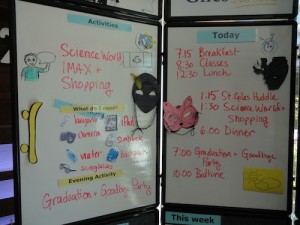 Activities
Science World
IMAX +
Shopping
What do I need?
camera
iPad
water
sunglasses
Evening Activity
Graduation + Goodbye Party
Today
7:15 Breakfast
8:30 Classes
12:30 Lunch
1:15 St. Giles Huddle
1:30 Science World +
Shopping
6:00 Dinner
7:00 Graduation + Goodbye
Party
10:00 Bedtime
This week